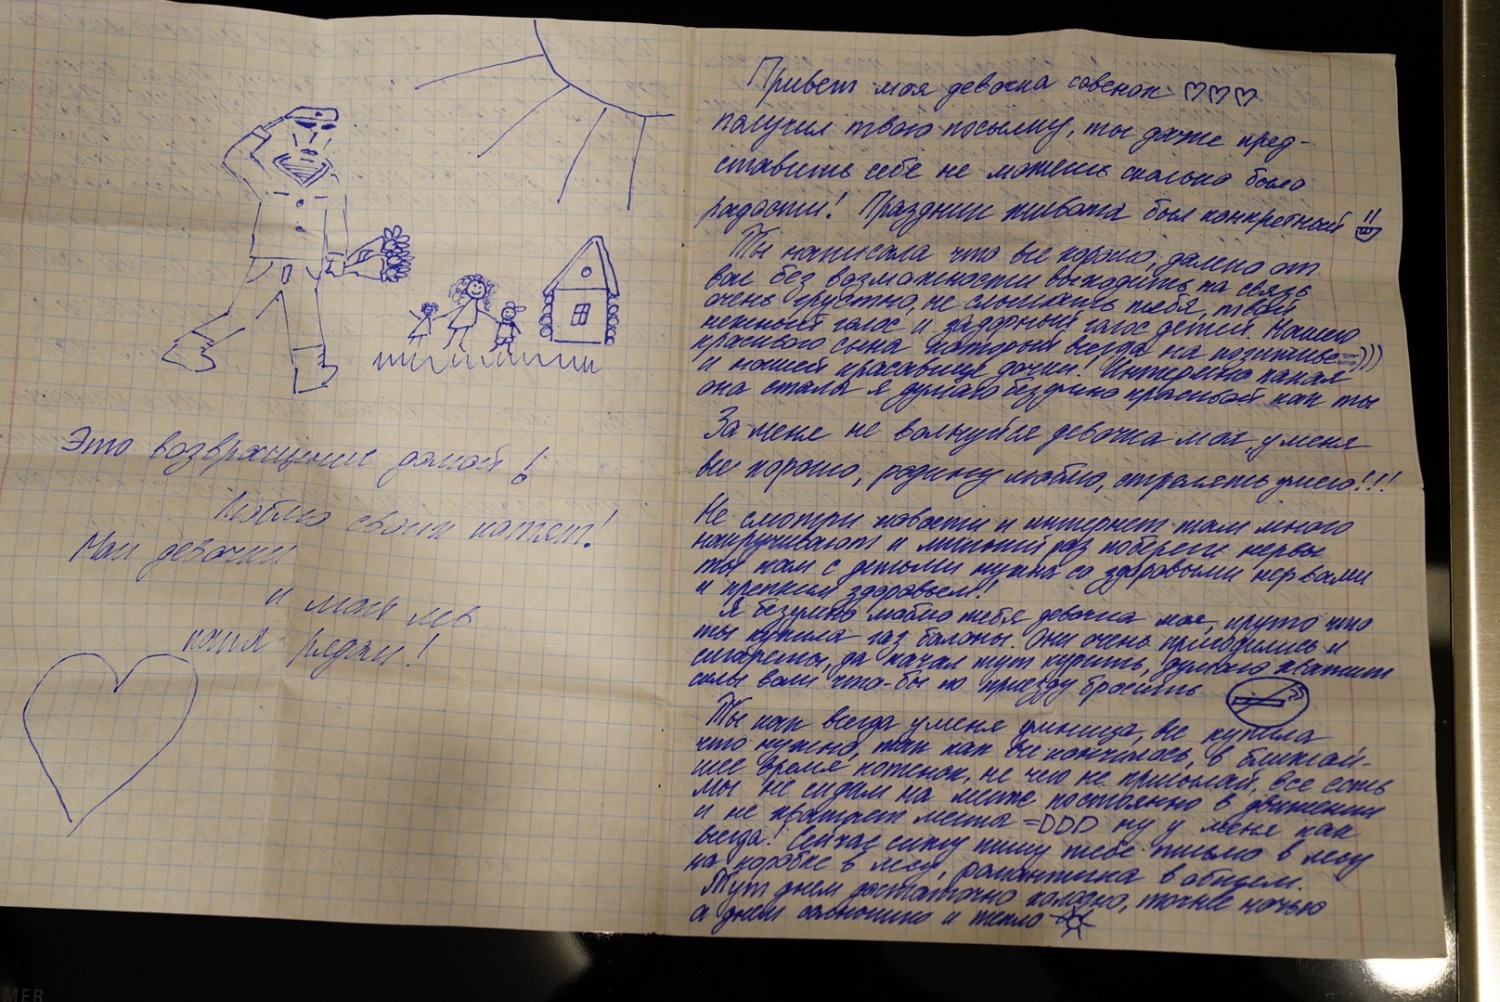 Это возвращение домой!
Люблю своих котят!
Мои девочки
и мой лев
наша редан!
Привет моя девочка совенок ♡♡♡
получил твою посылку, ты даже пред-
ставить себе не можешь сколько было
радости! Праздник живота был конкретный
Ты написала что все хорошо, далеко от
вас без возможности выходить на связь
очень грустно, не слышать тебя, твой
нежный голос и задорный голос детей. Нашего
красивого сына который всегда на позитиве =)))
и нашей красавице дочки! Интересно какая
она стала я думаю безумно красивой как ты
За меня не волнуйся девочка моя, у меня
все хорошо, родину люблю, стрелять умею!!!
Не смотри новости и интернет там много
накручивают и лишний раз побереги нервы
ты нам с детьми нужна со здоровыми нервами
и крепким здоровьем!!
Я безумно люблю тебя девочка моя, круто что
ты купила газ балоны. Они очень пригодились и
сигареты, да начал тут курить, думаю хватит
силы воли что-бы по приезду бросить
Ты как всегда у меня умница, все купила
что нужно, так как все кончилось, в ближай-
шее время котенок, не чего не присылай, все есть
мы не сидим на месте постоянно в движении
и не хватает места =DDD ну у меня как
всегда! Сейчас сижу пишу тебе письмо в лесу
на коробке в лесу, романтика в общем.
Тут днем достаточно холодно, точнее ночью
а днем солнышко и тепло